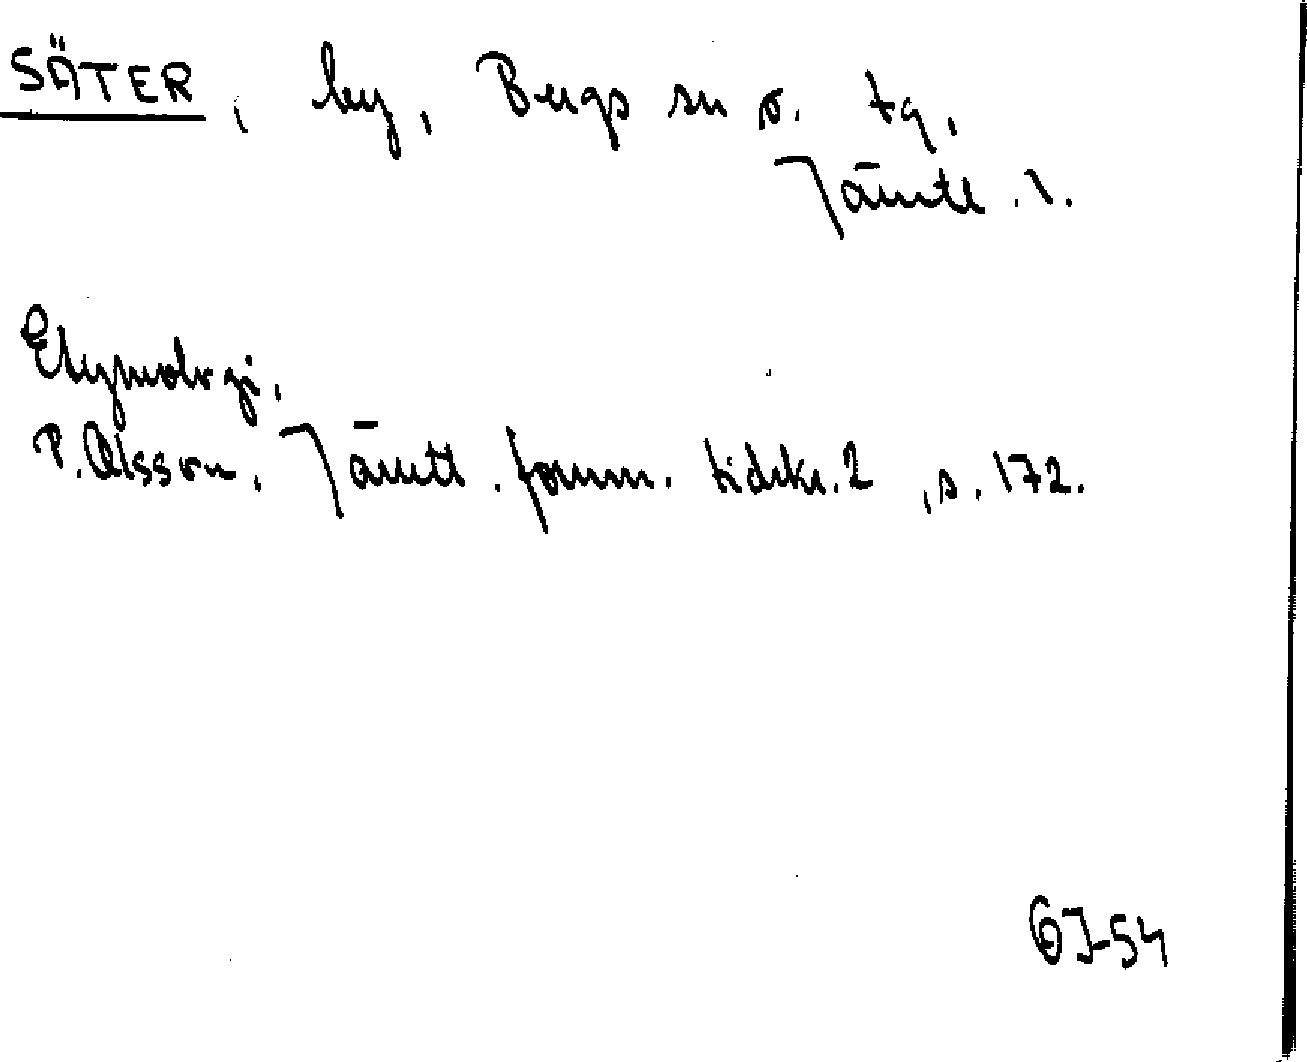 SÄTER, by, Bergs sn o. tg,
Jämtl. l.
Etymologi.
P. Olsson, Jämtl. fornm. tidskr. 2, s. 172.
GJ-54